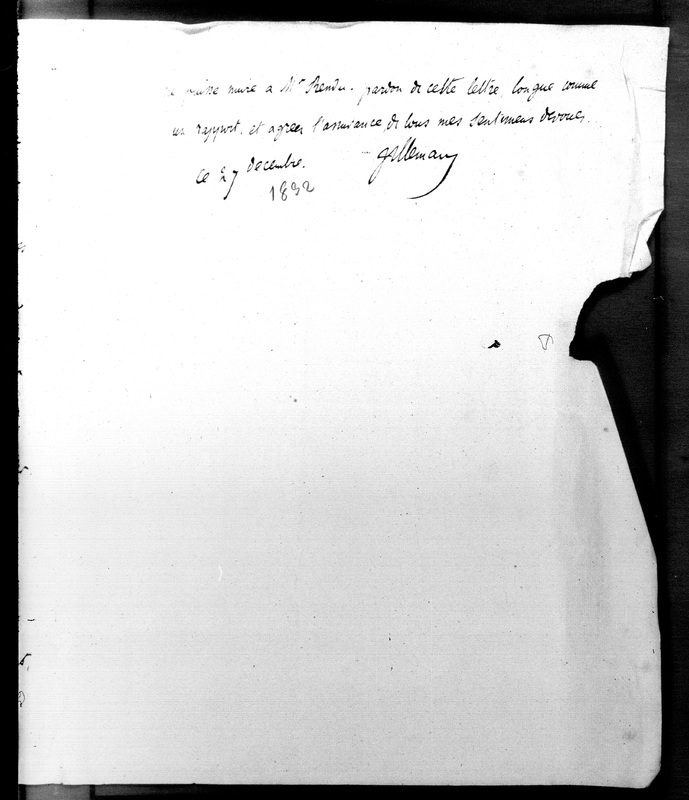 puisse nuire a Mr Rendu. pardon de cette lettre, longue comme
un rapport. et agreer l'assurance de tous mes sentimens devoués.
Ce 27 decembre.
1832